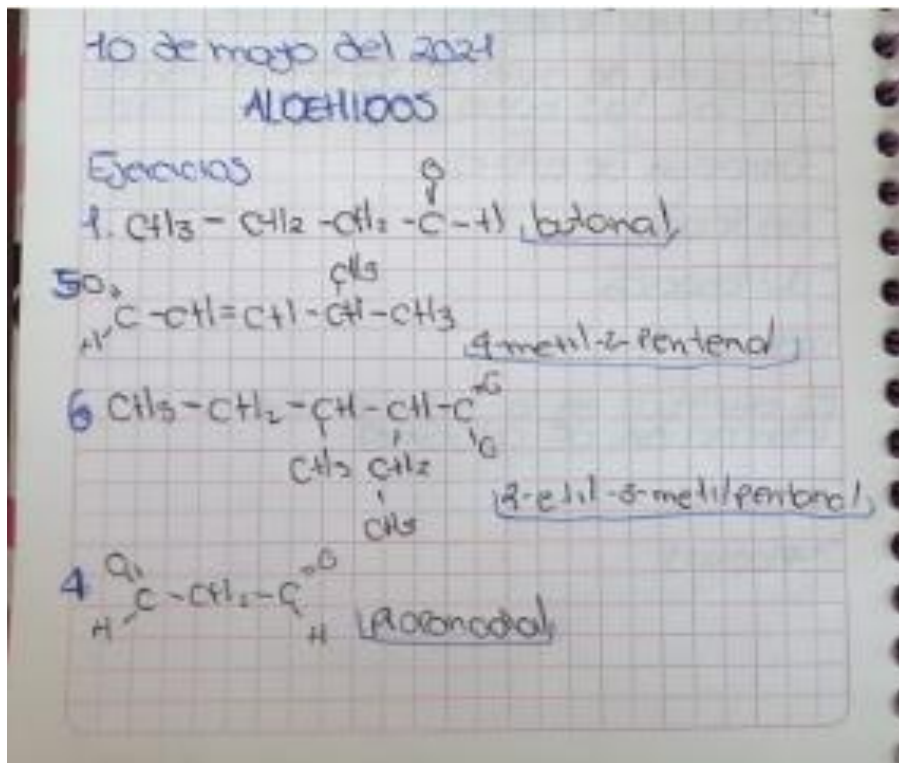 10 de mayo del 2021
ALDEHIDOS
Ejercicios
O
1. CH3 - CH2 - CH2 - C - H butanal
CH3
5 O
H C - CH = CH - CH - CH3
4-metil-2-Pentenal
6 CH3 - CH2 - CH - CH - C = O
CH3 CH2
CH3
2-etil-3-metilpentanal
4 O C - CH2 - C = O
H H Propanodial